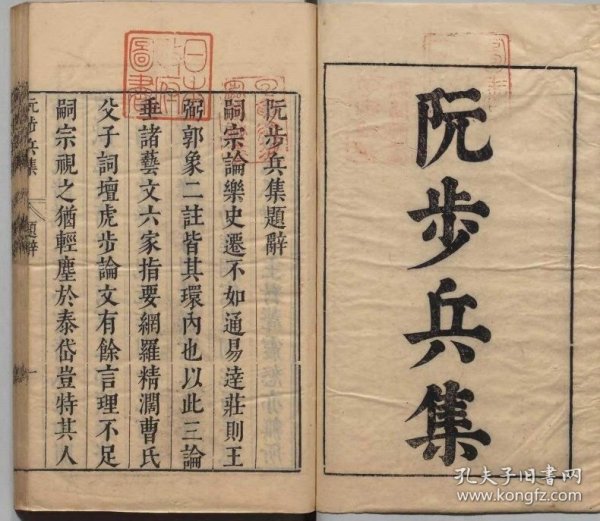 阮步兵集
阮步兵集題辭
嗣宗論樂史遷不如通易逹莊則王
弼郭象二註皆其環內也以此三論
垂諸藝文六家指要網羅精濶曹氏
父子詞壇虎步論文有餘言理不足
嗣宗視之猶輕塵於泰岱豈特其人
阮步兵集
題辭
一
孔夫子旧书网
www.kongfz.com